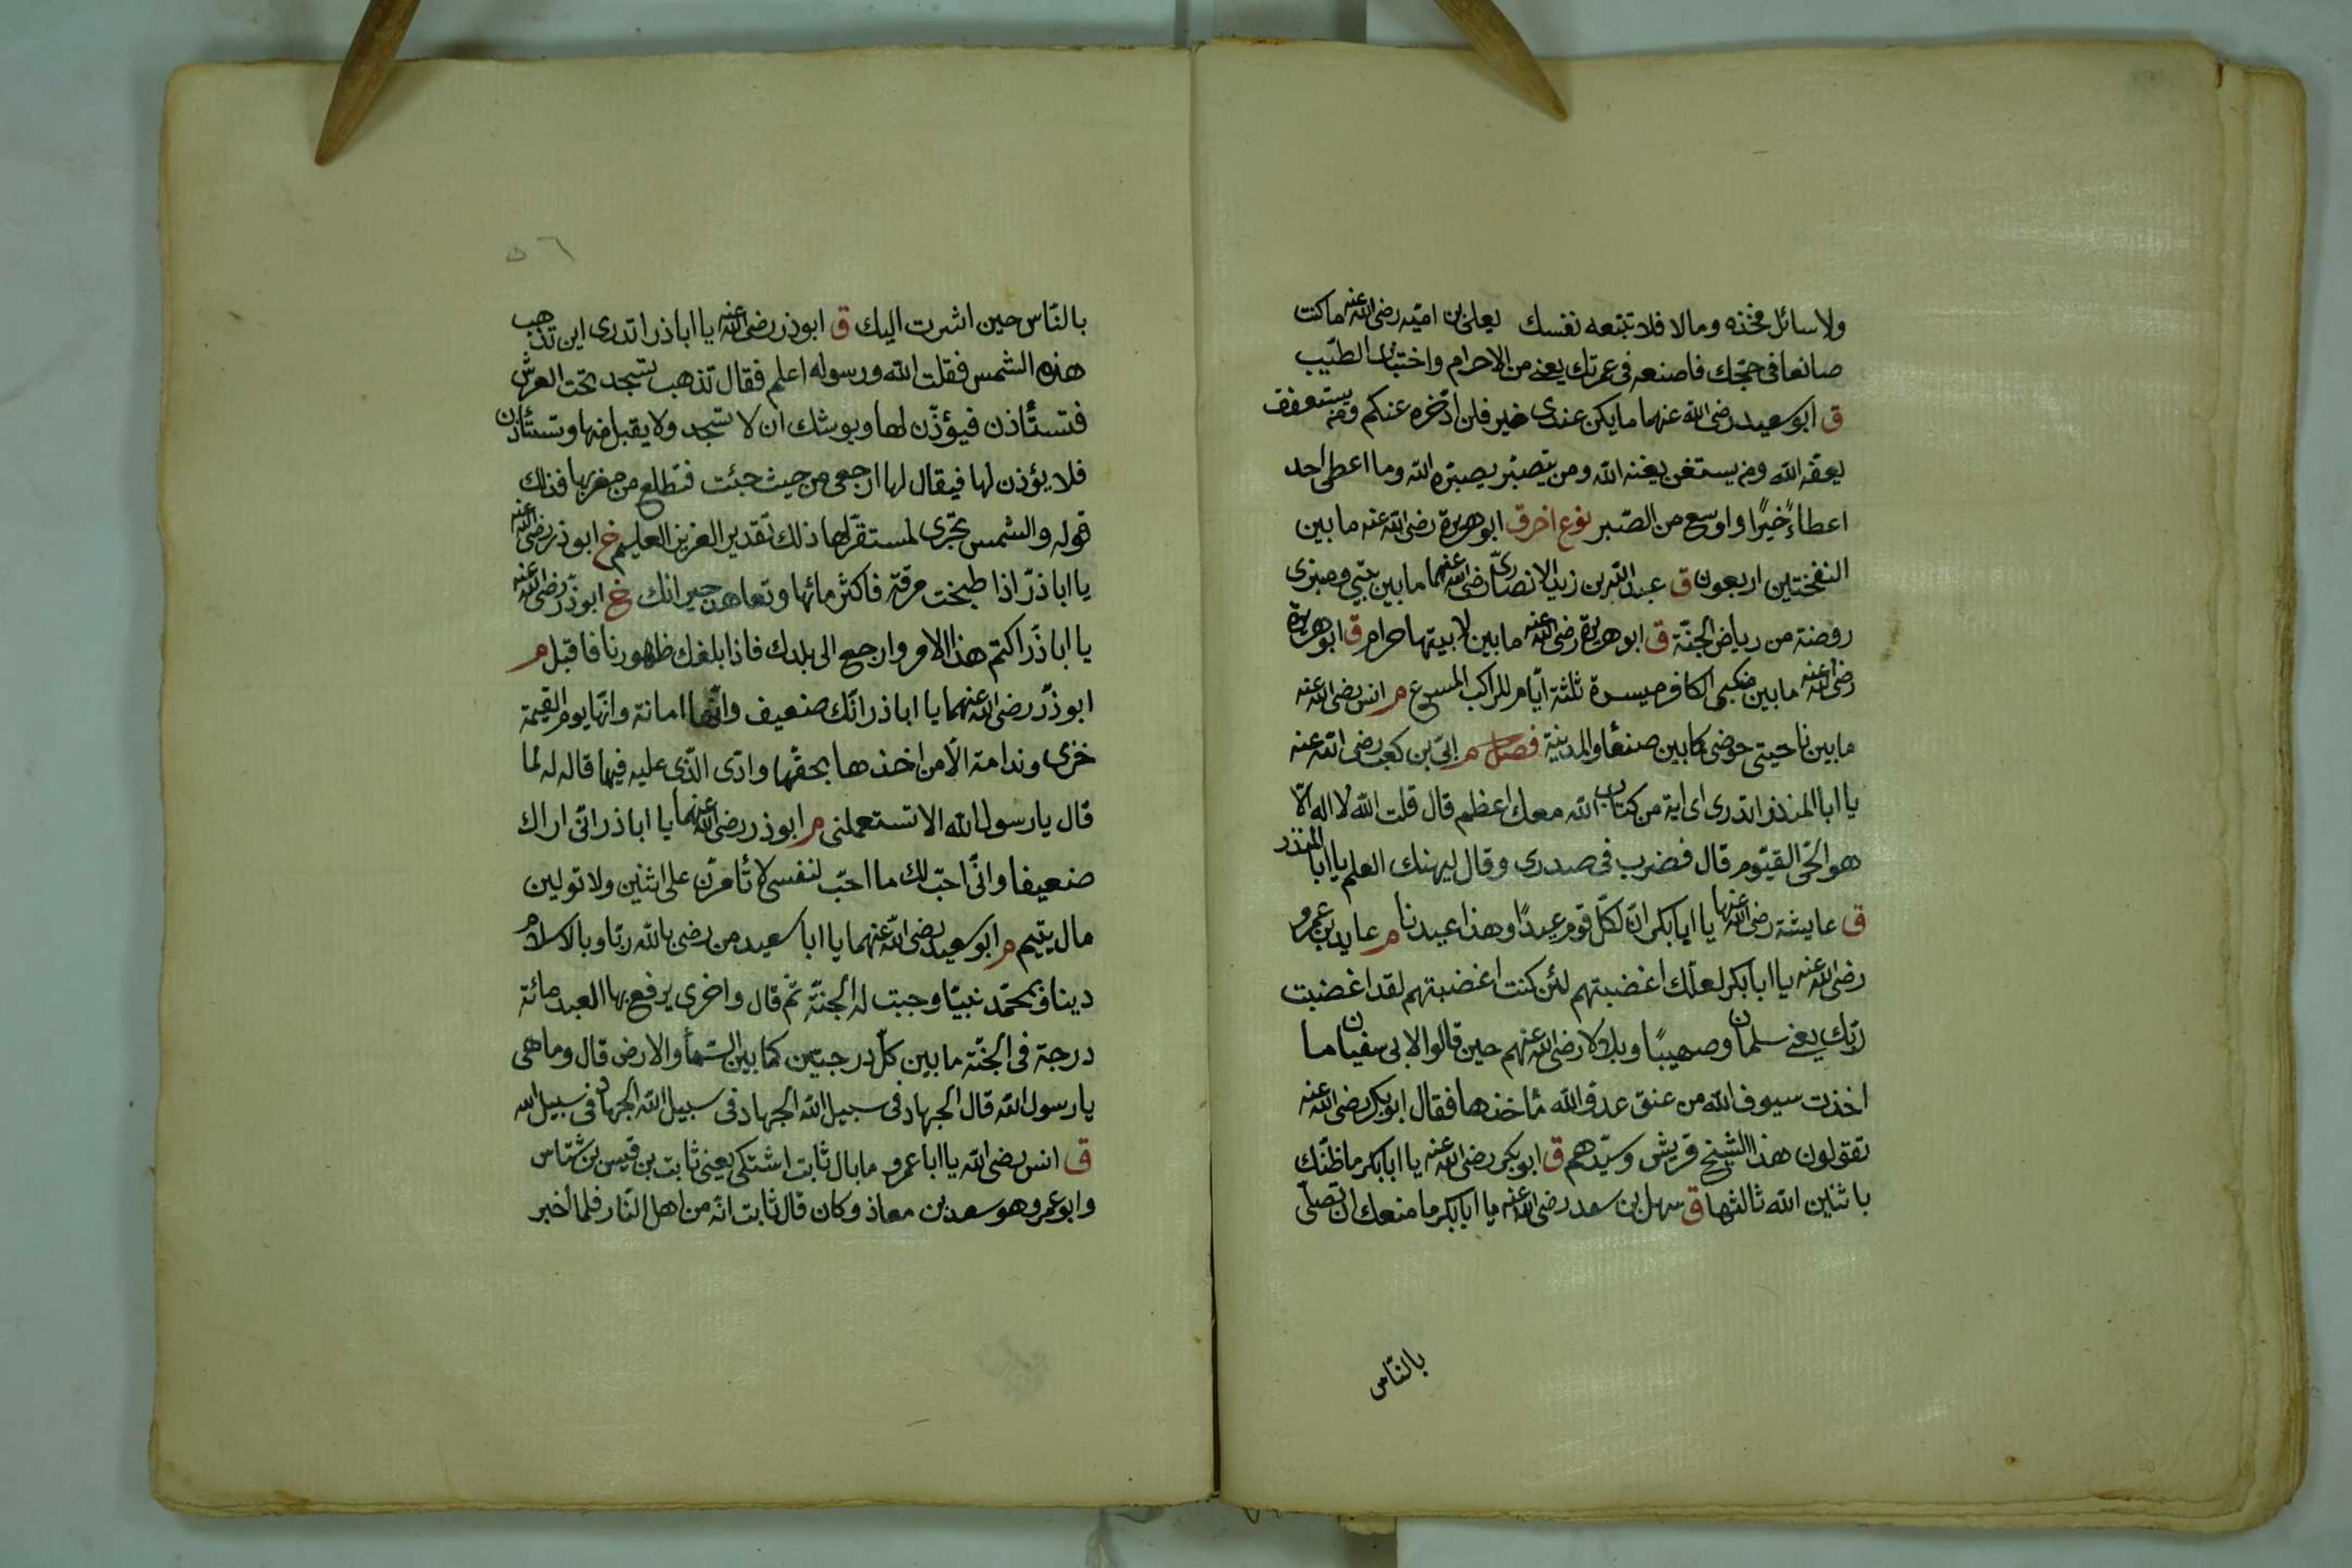 ولا سائل فخذه ومالا فلا تتبعه نفسك يعلى بن اميّه رضى الله عنه ما كنت
صانعا فى حجّك فاصنعه فى عمرتك يعنى من الاحرام واجتناب الطيّب
ق ابو سعيد رضى الله عنهما ما يكن عندى خير فلن ادّخره عنكم ومن يستعفف
يعفّه الله ومن يستغن يغنه الله ومن يتصبّر يصبّره الله وما اعطى احد
اعطاءً خيرًا واوسع من الصّبر نوع اخر ق ابو هريرة رضى الله عنه ما بين
النفختين اربعون ق عبد الله بن زيد الانصارىّ رضى الله عنهما ما بين بيتى ومنبرى
روضة من رياض الجنّة ق ابو هريرة رضى الله عنه ما بين لابيتها حرام ق ابو هريرة
رضى الله عنه ما بين منكبى الكافر ميسرة ثلثة ايّام للراكب المسرع م انس رضى الله عنه
ما بين ناحيتى حوضى كما بين صنعأ والمدينة فصل م ابىّ بن كعب رضى الله عنه
يا ابا المنذر اتدرى اى اية من كتاب الله معك اعظم قال قلت الله لا اله الّا
هو الحّى القيّوم قال فضرب فى صدرى وقال ليهنك العلم يا ابا المنذر
ق عايشة رضى الله عنها يا ابابكر انّ لكلّ قوم عيدًا وهذا عيدنا م عايد بن عمرو
رضى الله عنه يا ابابكر لعلّك اغضبتهم لئن كنت اغضبتهم لقد اغضبت
ربّك يعنى سلمان وصهيبًا وبلالا رضى الله عنهم حين قالوا لابى سفيان ما
اخذت سيوف الله من عنق عدو الله مأخذها فقال ابو بكر رضى الله عنه
تقولون هذا الشيخ قريش وسيّدهم ق ابو بكر رضى الله عنه يا ابابكر ما ظنّك
باثنين الله ثالثها ق سهل بن سعد رضى الله عنه يا ابابكر ما منعك ان تصلّى
بالنّاس
٥٦
بالنّاس حين اشرت اليك ق ابوذر رضى الله عنه يا اباذر اتدرى اين تذهب
هذه الشمس فقلت الله ورسوله اعلم فقال تذهب تسجد تحت العرش
فتستأذن فيؤذّن لها ويوشك ان لا تسجد ولا يقبل منها وتستأذن
فلا يؤذن لها فيقال لها ارجعى من حيث جئت فتطلع من مغربها فذلك
قوله والشمس تجرى لمستقرّ لها ذلك تقدير العزيز العليم خ ابوذر رضى الله عنه
يا اباذرّ اذا طبخت مرقة فاكثر مائها وتعاهد جيرانك خ ابوذّر رضى الله عنه
يا اباذّر اكتم هذا الامر وارجع الى بلدك فاذا بلغك ظهورنا فاقبل م
ابوذّر رضى الله عنهما يا اباذر انّك ضعيف وانّها امانة وانّها يوم القيمة
خزى وندامة الّا من اخذها بحقّها وادّى الّذى عليه فيها قاله له لما
قال يا رسول الله الا تستعملنى م ابوذر رضى الله عنهما يا اباذر انّى اراك
ضعيفا وانّى احبّ لك ما احبّ لنفسى لا تأمّرن على اثنين ولا تولين
مال يتيم م ابو سعيد رضى الله عنهما يا ابا سعيد من رضى بالله ربّا وبالاسلام
دينا وبمحمّد نبيّا وجبت له الجنّة ثم قال واخرى يرفع بها العبد مائة
درجة فى الجنّة ما بين كلّ درجتين كما بين السّمأ والارض قال وما هى
يا رسول الله قال الجهاد فى سبيل الله الجهاد فى سبيل الله الجهاد فى سبيل الله
ق انس رضى الله يا ابا عمرو ما بال ثابت اشتكى يعنى ثابت بن قيس بن شمّاس
وابو عمرو هو سعد بن معاذ وكان قال ثابت انّه من اهل النّار فلما اخبر